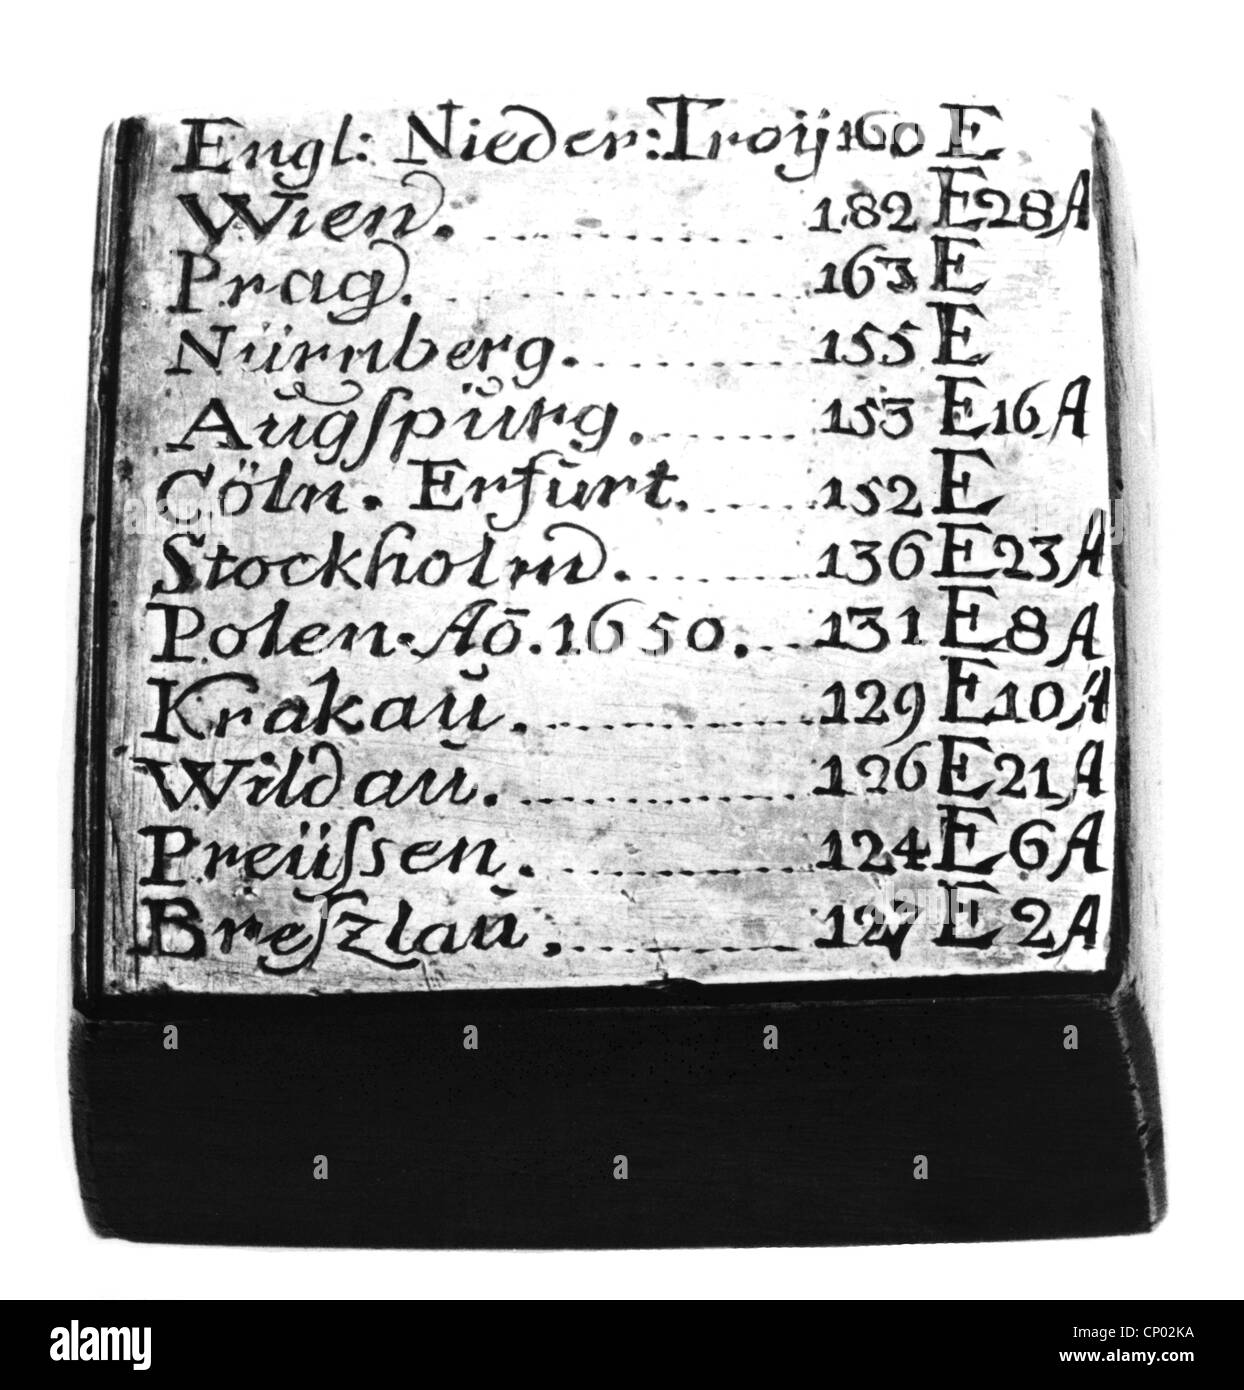 Engl: Nieder: Troÿ 160 E
Wien. 182 E 28 A
Prag. 163 E
Nürnberg. 155 E
Aŭgſpŭrg. 153 E 16 A
Cöln. Erfŭrt. 152 E
Stockholm. 136 E 23 A
Polen. Aō. 1650. 131 E 8 A
Krakaŭ. 129 E 10 A
Wildaŭ. 126 E 21 A
Preüſsen. 124 E 6 A
Breſzlaŭ. 127 E 2 A
alamy
Image ID: CP02KA
www.alamy.com